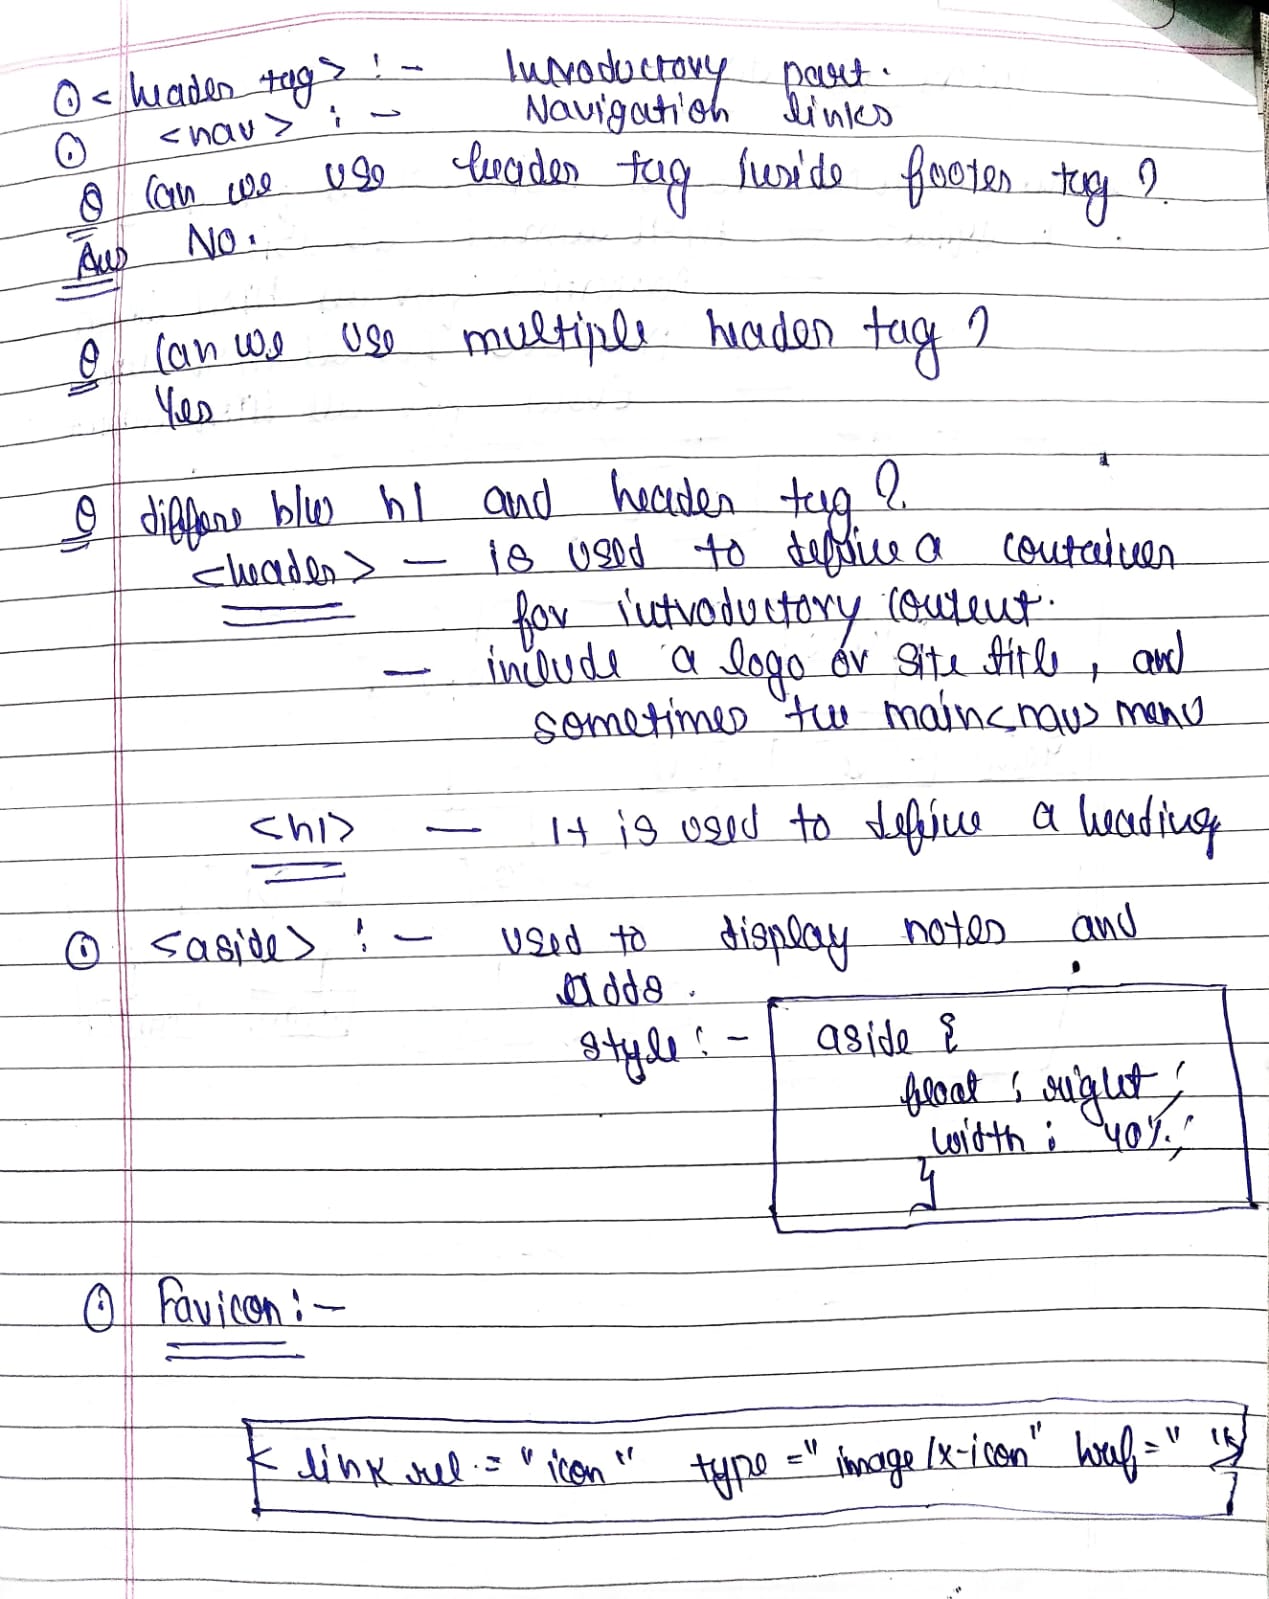 <header tag> :- Introductory part.
<nav> :- Navigation links
Q Can we use header tag inside footer tag ?
Ans No.
Q Can we use multiple header tag ?
Yes
Q differe b/w h1 and header tag ?
<header> - is used to define a container
for introductory content.
- include a logo or site title, and
sometimes the main <nav> menu
<h1> - It is used to define a heading
<aside> :- used to display notes and
adds.
style :- aside {
float : right ;
width : 40% ;
}
Favicon :-
< link rel = "icon" type = "image/x-icon" href = " ">